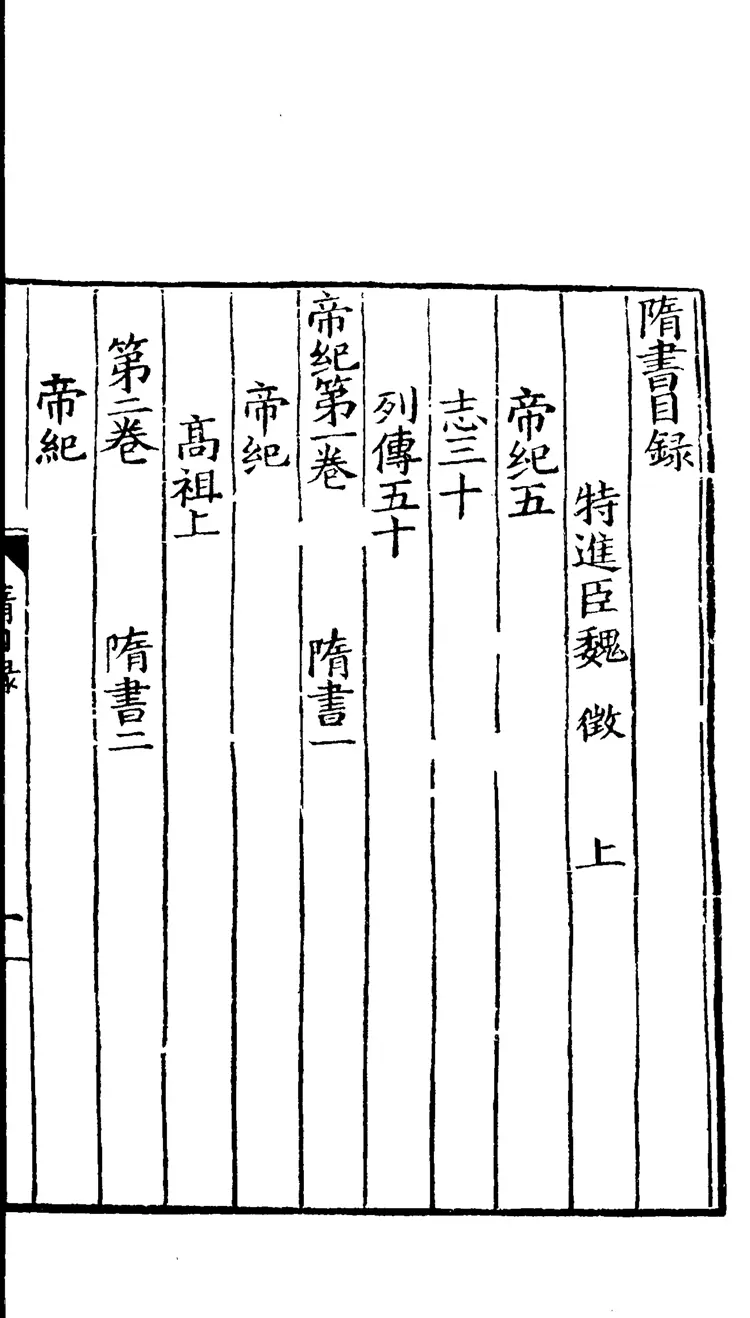 隋書目録
特進臣魏 徵 上
帝紀五
志三十
列傳五十
帝紀第一卷 隋書一
帝紀
高祖上
第二卷 隋書二
帝紀
隋目录
一